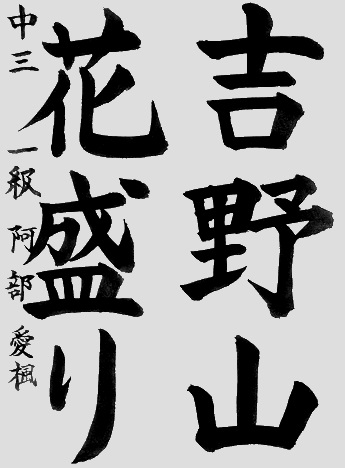 吉野山
花盛り
中三 一級 阿部 愛楓